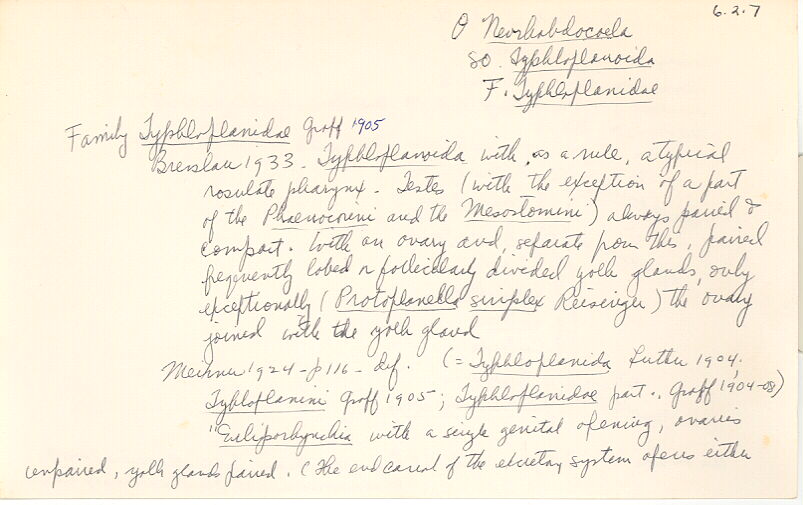 6.2.7
O Neorhabdocoela
SO. Typhloplanoida
F. Typhloplanidae
Family Typhloplanidae Graff 1905
Breslau 1933. Typhloplanoida with, as a rule, a typical
rosulate pharynx - Testes (with the exception of a part
of the Phaenocorini and the Mesostomini) always paired &
compact. With an ovary and, separate from this, paired
frequently lobed or follicularly divided yolk glands, only
exceptionally (Protoplanella simplex Reisinger) the ovary
joined with the yolk gland
Meixner 1924 - p 116 - def. (= Typhloplanida Luther 1904;
Typhloplanini Graff 1905; Typhloplanidae part., Graff 1904-08)
"Eulipo­rhynchia with a single genital opening, ovaries
unpaired, yolk glands paired. (The end canal of the excretory system opens either